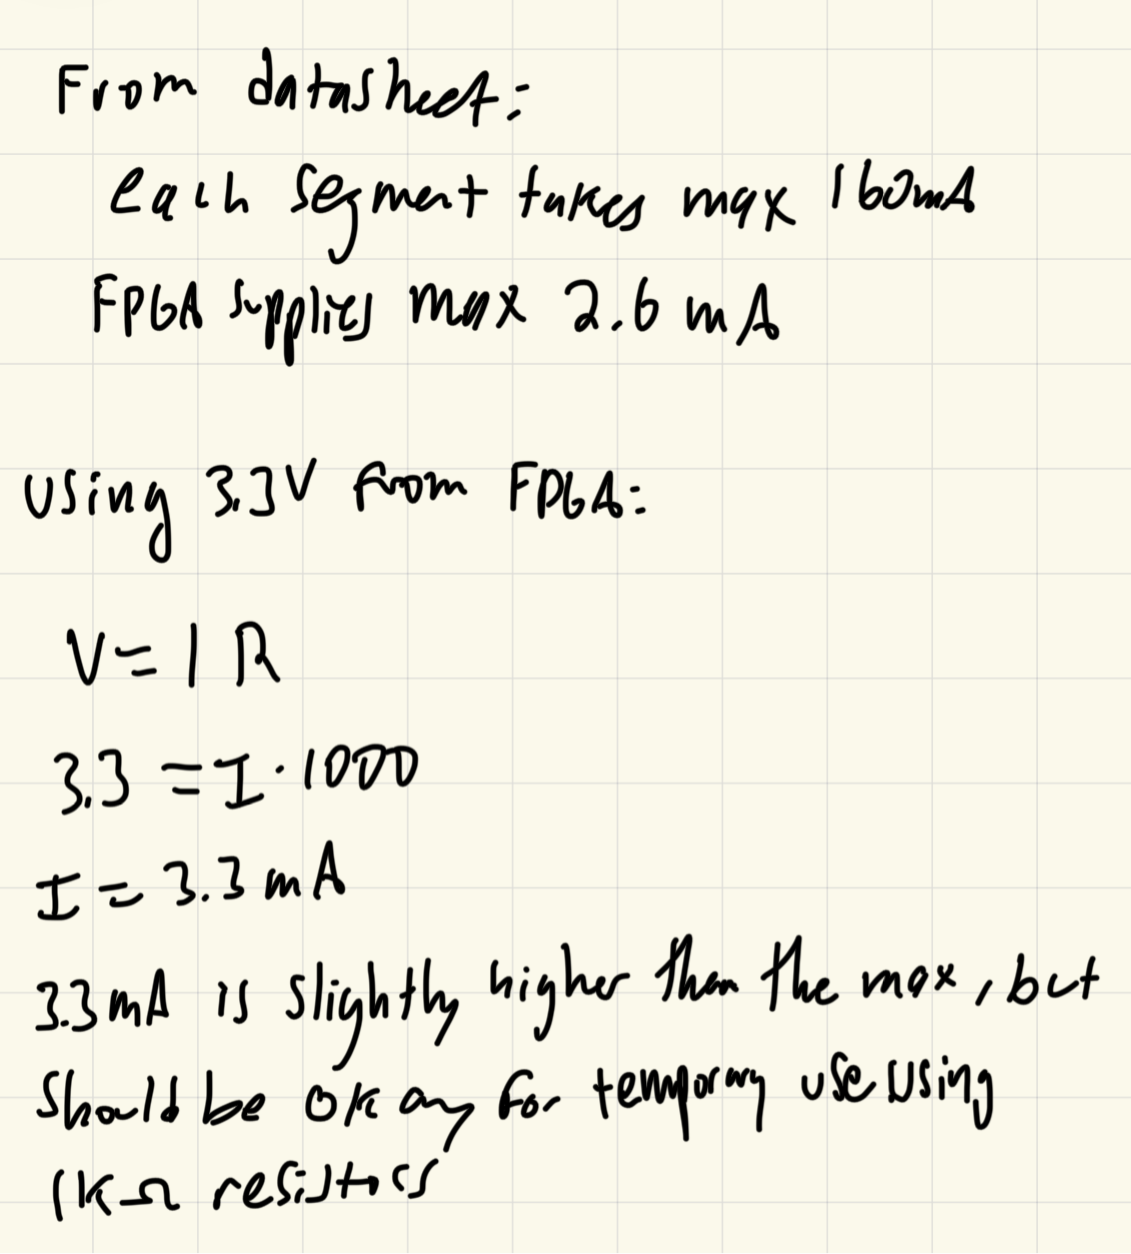 From datasheet:
each segment takes max 160mA
FPGA supplies max 2.6 mA
Using 3.3V from FPGA:
V = I R
3.3 = I · 1000
I = 3.3 mA
3.3 mA is slightly higher than the max, but
should be okay for temporary use using
1KΩ resistors